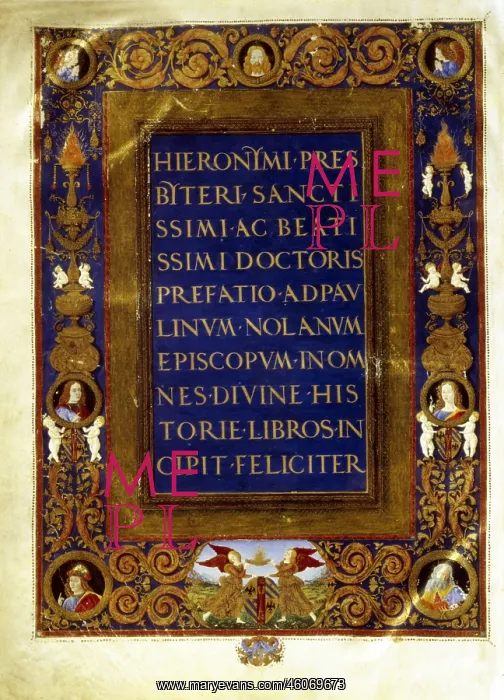 HIERONYMI·PRES
BYTERI·SANCTI
SSIMI·AC BEATI
SSIMI DOCTORIS
PREFATIO·ADPAV
LINVM·NOLANVM
EPISCOPVM·INOM
NES·DIVINE·HIS
TORIE·LIBROS·IN
CIPIT·FELICITER
ME
PL
ME
PL
www.maryevans.com/46069673